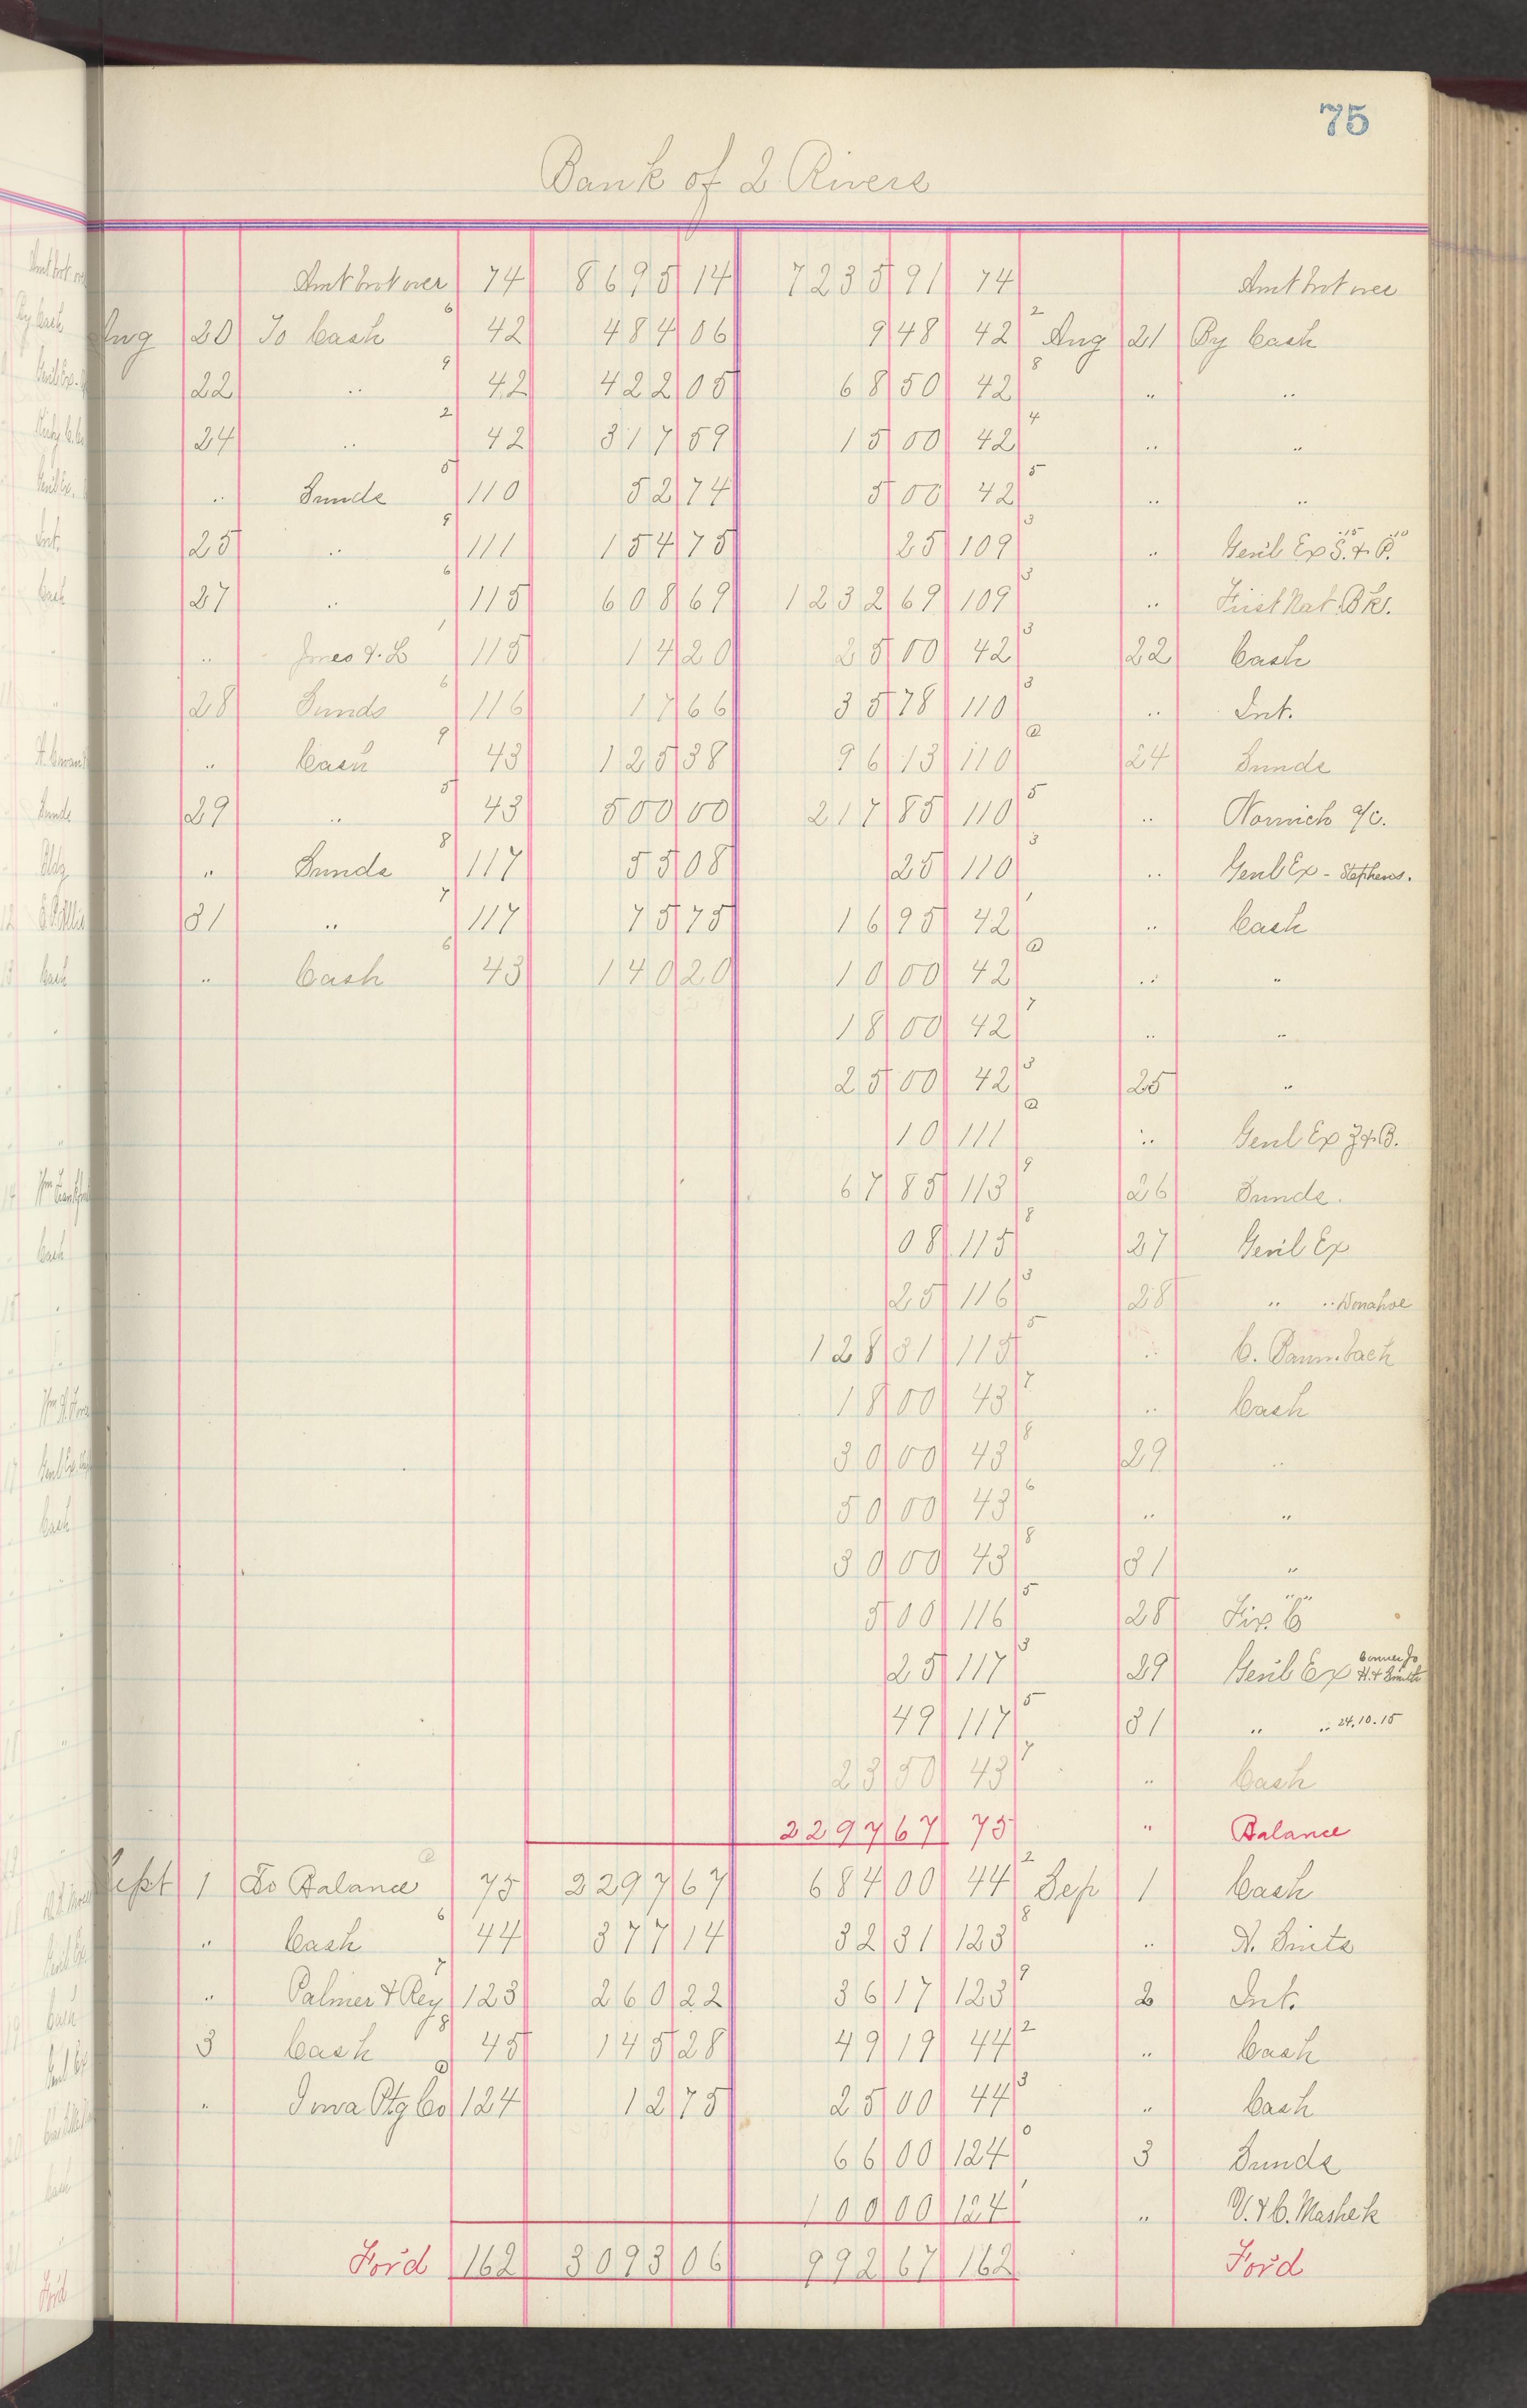 75
Bank of 2 Rivers
Amt brot over 74 8695 14 7235 91 74 Amt brot over
Aug 20 To Cash 6 42 484 06 9 48 42 2 Aug 21 By Cash
22 .. 9 42 422 05 68 50 42 8 .. ..
24 .. 2 42 317 59 15 00 42 4 .. ..
.. Sunds 5 110 52 74 5 00 42 5 .. ..
25 .. 9 111 154 75 25 109 3 .. Gen'l Ex S. 15 & P. 10
27 .. 6 115 608 69 1232 69 109 3 .. First Nat. Bk.
.. Jones & L 1 115 14 20 25 00 42 3 22 Cash
28 Sunds 6 116 17 66 35 78 110 3 .. Int.
.. Cash 9 43 125 38 96 13 110 @ 24 Sunds
29 .. 5 43 500 00 217 85 110 5 .. Norwich a/c.
.. Sunds 8 117 55 08 25 110 3 .. Genl Ex - Stephens.
31 .. 7 117 75 75 16 95 42 1 .. Cash
.. Cash 6 43 140 20 10 00 42 @ .. ..
18 00 42 7 .. ..
25 00 42 3 25 ..
10 111 @ .. Genl Ex J & B.
67 85 113 9 26 Sunds.
08 115 8 27 Gen'l Ex
25 116 3 28 .. .. Donahoe
128 31 115 5 .. C. Baumbach
18 00 43 7 .. Cash
30 00 43 8 29 ..
50 00 43 6 .. ..
30 00 43 8 31 ..
5 00 116 5 28 Fix. "C"
25 117 3 29 Gen'l Ex H. & Smith
49 117 5 31 .. .. 24.10.15
23 50 43 7 .. Cash
2297 67 75 " Balance
Sept 1 To Balance @ 75 2297 67 684 00 44 2 Sep 1 Cash
.. Cash 6 44 377 14 32 31 123 8 .. N. Smits
.. Palmer & Rey 7 123 260 22 36 17 123 9 2 Int.
3 Cash 8 45 145 28 49 19 44 2 .. Cash
.. Iowa Ptg Co @ 124 12 75 25 00 44 3 .. Cash
66 00 124 0 3 Sunds
100 00 124 1 .. V. & C. Mashek
For'd 162 3093 06 992 67 162 For'd